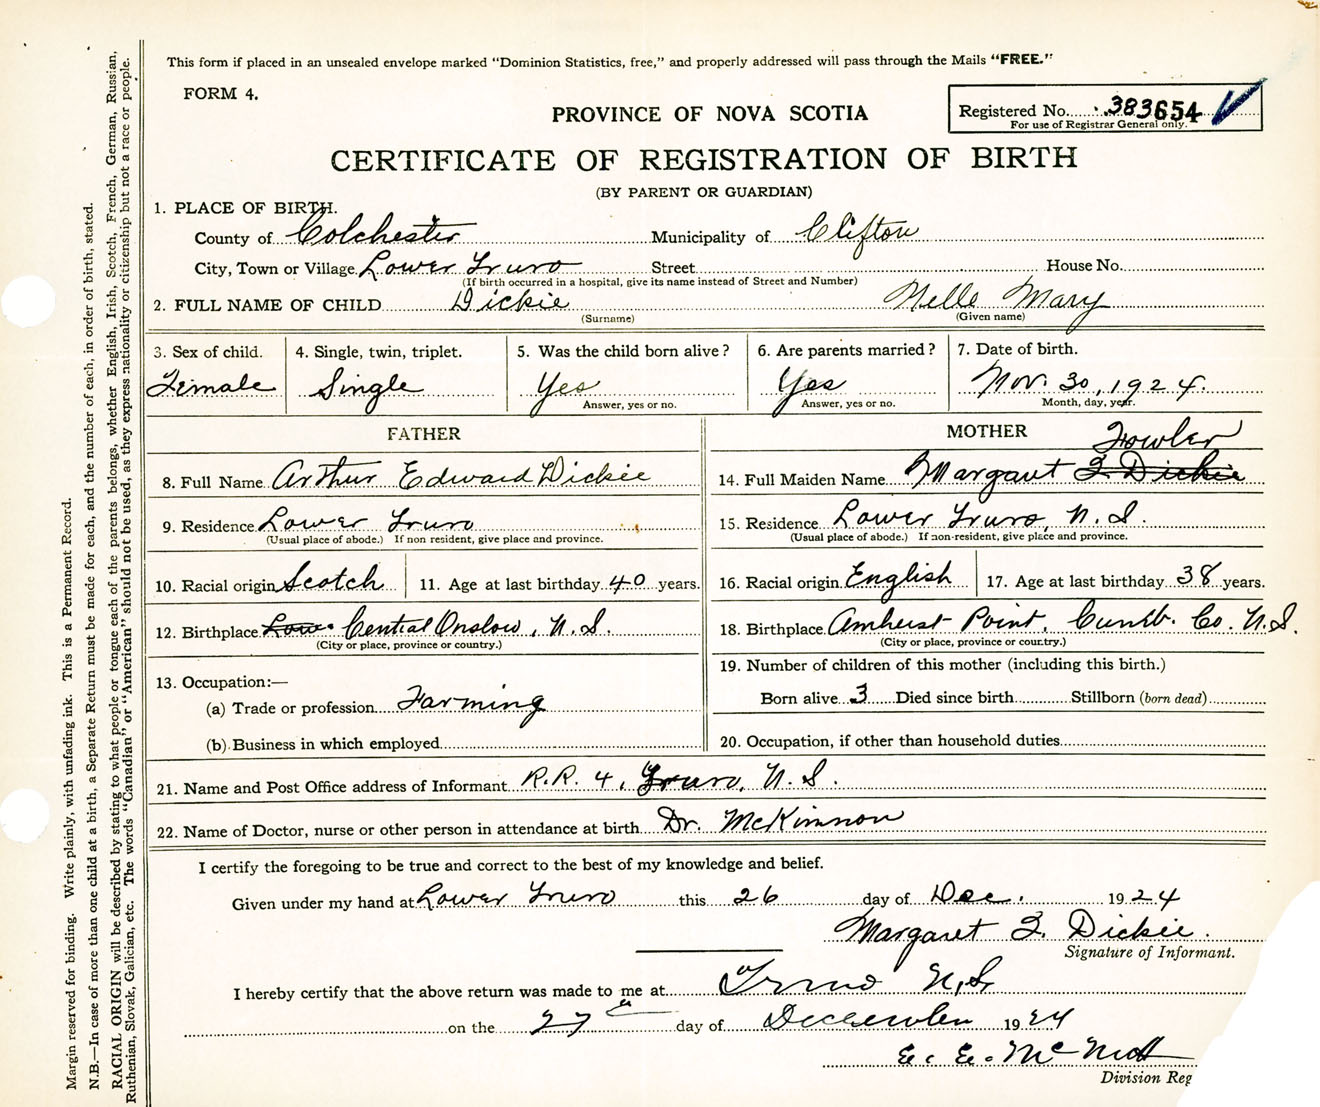 This form if placed in an unsealed envelope marked "Dominion Statistics, free," and properly addressed will pass through the Mails "FREE."
FORM 4.
PROVINCE OF NOVA SCOTIA
Registered No. 383654
For use of Registrar General only.
CERTIFICATE OF REGISTRATION OF BIRTH
(BY PARENT OR GUARDIAN)
1. PLACE OF BIRTH.
County of Colchester Municipality of Clifton
City, Town or Village Lower Truro Street House No.
(If birth occurred in a hospital, give its name instead of Street and Number)
2. FULL NAME OF CHILD Dickie Nelle Mary
(Surname) (Given name)
3. Sex of child. 4. Single, twin, triplet. 5. Was the child born alive? 6. Are parents married? 7. Date of birth.
Female Single Yes Yes Nov. 30, 1924.
Answer, yes or no. Answer, yes or no. Month, day, year.
FATHER
8. Full Name Arthur Edward Dickie
9. Residence Lower Truro
(Usual place of abode.) If non resident, give place and province.
10. Racial origin Scotch 11. Age at last birthday 40 years.
12. Birthplace Lower Central Onslow, N.S.
(City or place, province or country.)
13. Occupation:—
(a) Trade or profession Farming
(b) Business in which employed
MOTHER
Fowler
14. Full Maiden Name Margaret F. Dickie
15. Residence Lower Truro, N.S.
(Usual place of abode.) If non-resident, give place and province.
16. Racial origin English 17. Age at last birthday 38 years.
18. Birthplace Amherst Point, Cumb. Co. N.S.
(City or place, province or country.)
19. Number of children of this mother (including this birth.)
Born alive 3 Died since birth Stillborn (born dead)
20. Occupation, if other than household duties
21. Name and Post Office address of Informant R.R. 4, Truro, N.S.
22. Name of Doctor, nurse or other person in attendance at birth Dr. McKinnon
I certify the foregoing to be true and correct to the best of my knowledge and belief.
Given under my hand at Lower Truro this 26 day of Dec. 1924
Margaret F. Dickie.
Signature of Informant.
I hereby certify that the above return was made to me at Truro N.S.
on the 27th day of December 1924
E. E. McNutt
Division Reg
Margin reserved for binding. Write plainly, with unfading ink. This is a Permanent Record.
N.B.—In case of more than one child at a birth, a Separate Return must be made for each, and the number of each, in order of birth, stated.
RACIAL ORIGIN will be described by stating to what people or tongue each of the parents belongs, whether English, Irish, Scotch, French, German, Russian,
Ruthenian, Slovak, Galician, etc. The words "Canadian" or "American" should not be used, as they express nationality or citizenship but not a race or people.